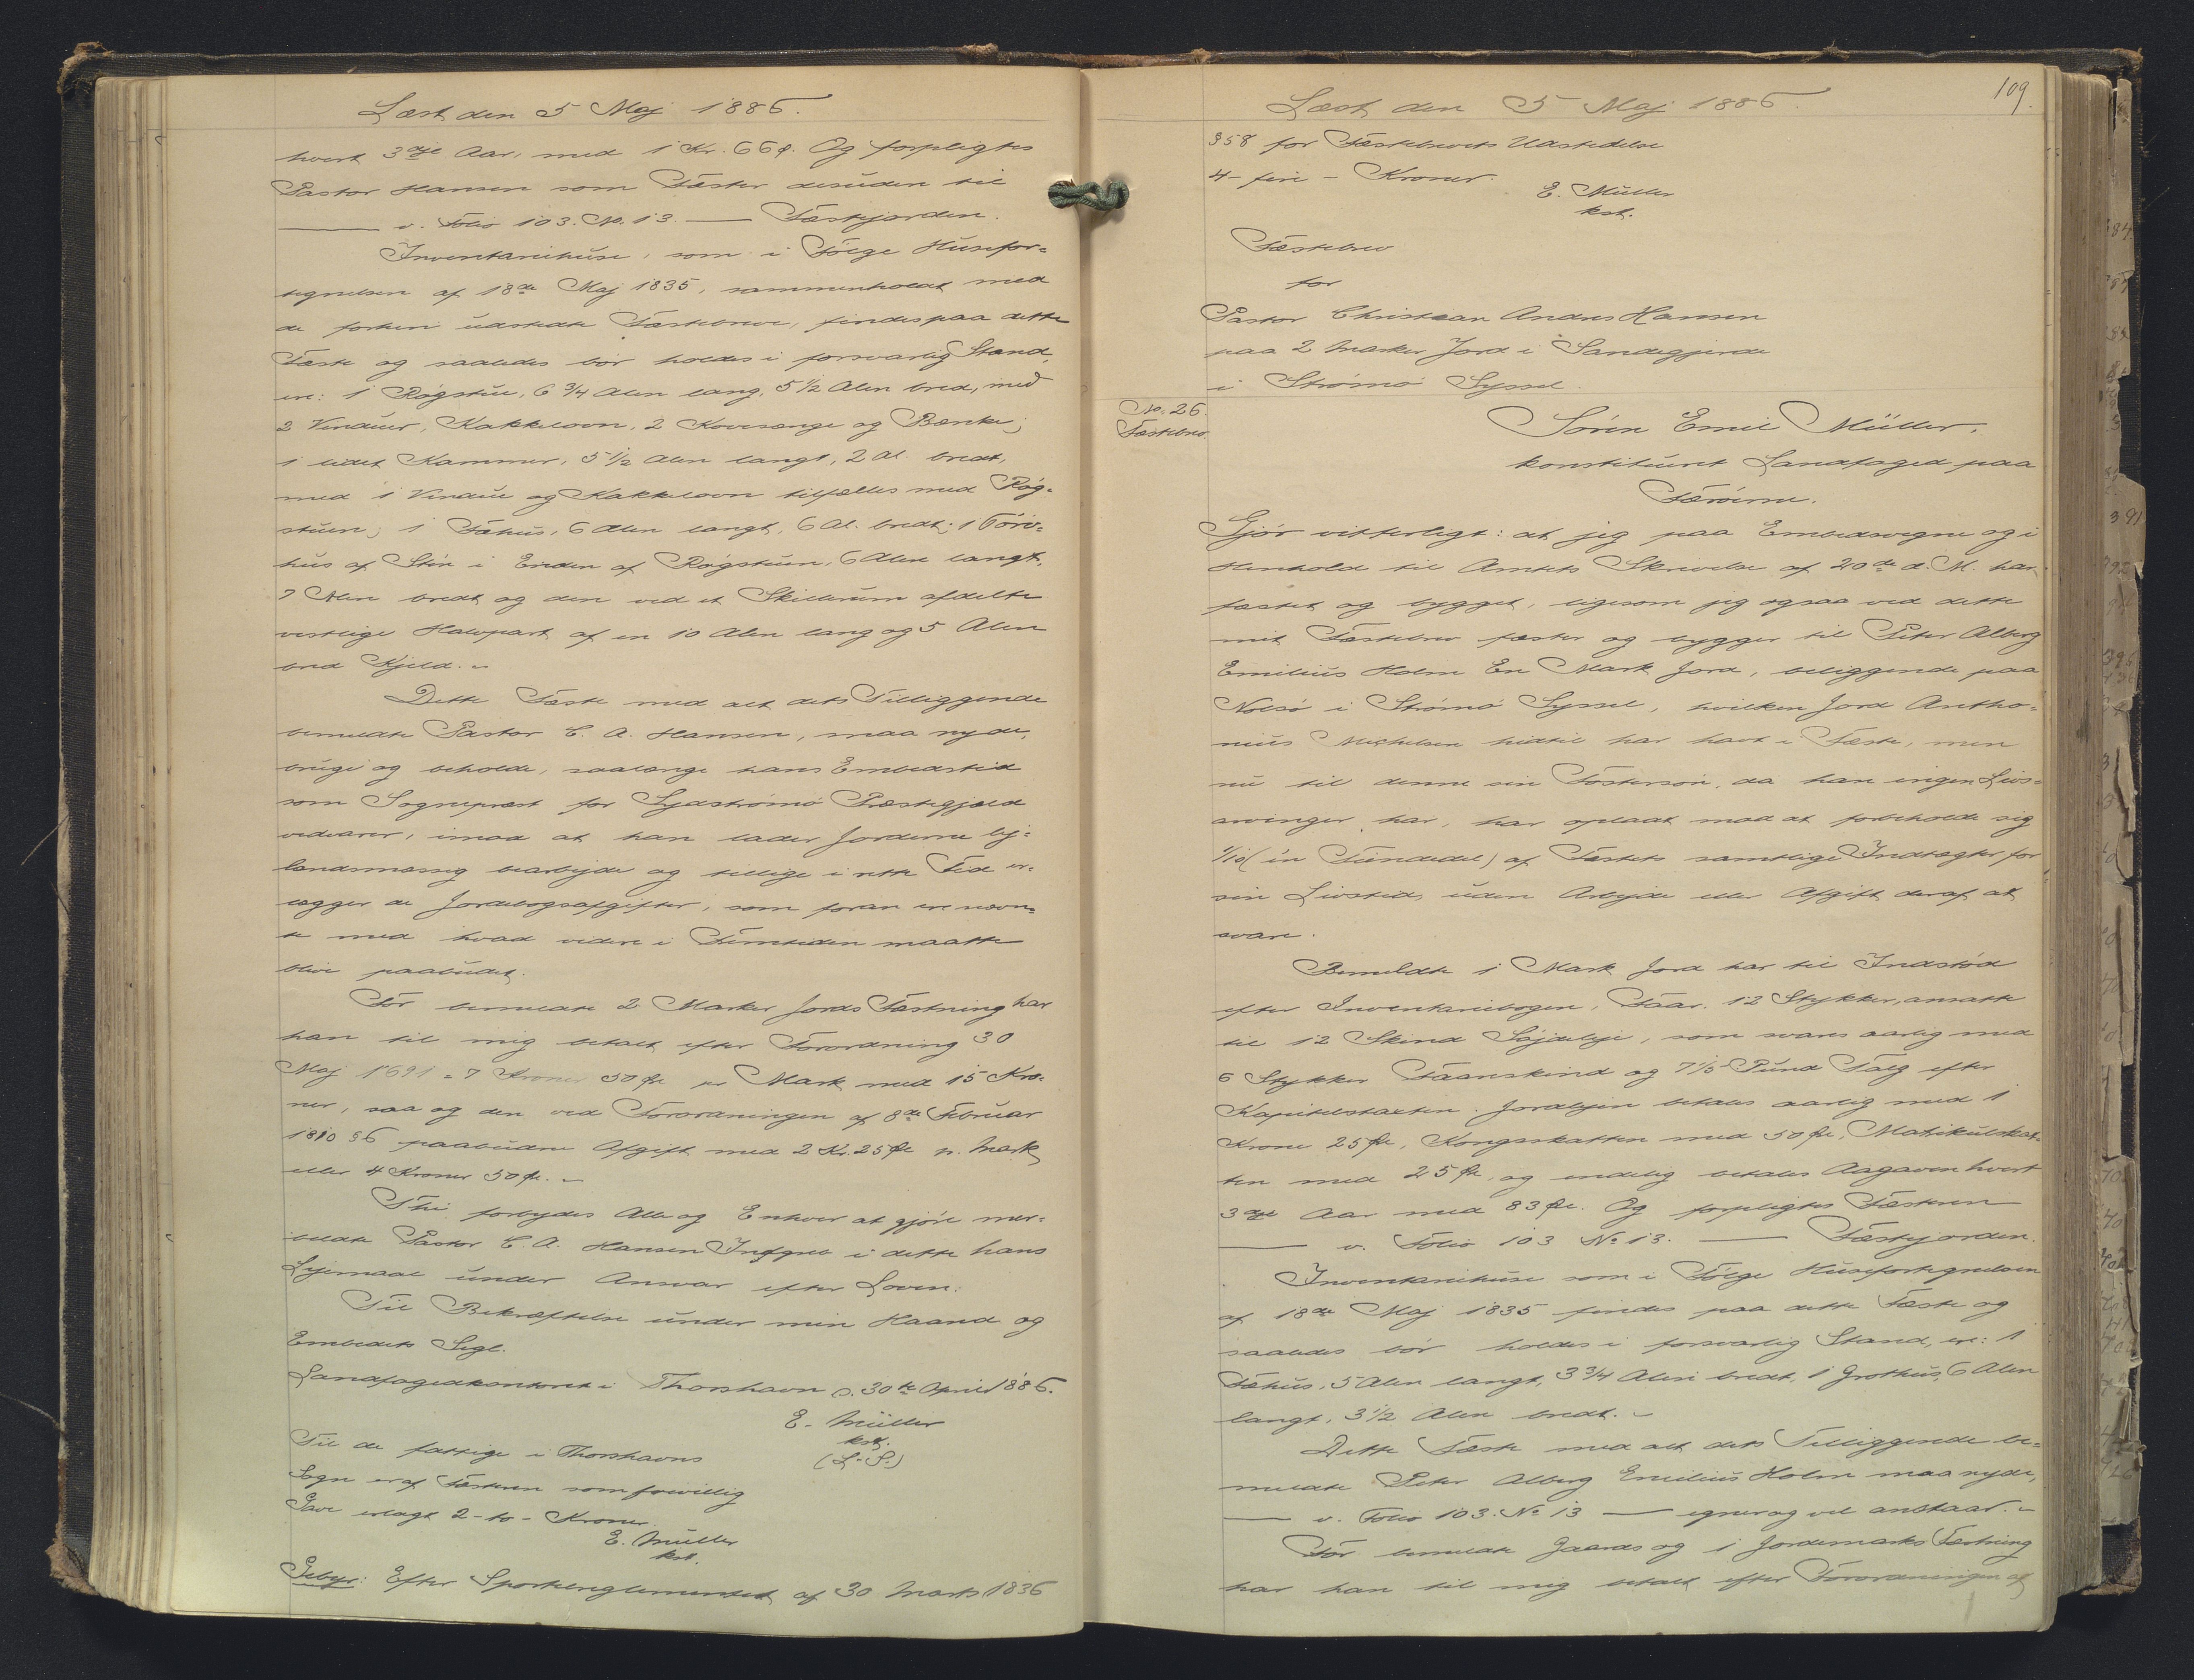 Læst den 5 Maj 1886.
hvert 3dje Aar, med 1 Kr. 66 Ø. Og forpligtes
Pastor Hansen som Fæster desuden til
—— v. Folio 103. No. 13. —— Fæstejorden.
Inventariehuse, som i Følge Husefor=
tegnelsen af 18de Maj 1835, sammenholdt med
de forhen udstedte Fæstebreve, findes paa dette
Fæste og saaledes bør holdes i forsvarlig Stand,
ere: 1 Røgstue, 6 3/4 Alen lang, 5 1/2 Alen bred, med
2 Vinduer, Kakkelovn, 2 Kovesenge og Bænke;
1 lidet Kammer, 5 1/2 Alen langt, 2 Al. bredt,
med 1 Vindue og Kakkelovn tilfælles med Røg=
stuen; 1 Fæhus, 6 Alen langt, 6 Al. bredt; 1 Törv=
hus af Sten i Enden af Røgstuen, 6 Alen langt,
7 Alen bredt og den ved et Skillerum afdelte
vestlige Halvpart af en 10 Alen lang og 5 Alen
bred Kjeld. -
Dette Fæste med alt dets Tilliggende
bemeldte Pastor C. A. Hansen, maa nyde,
bruge og beholde, saalænge hans Embedstid
som Sognepræst for Sydstrømø Præstegjæld
vedvarer, imod at han lader Jorderne lej=
landsmæssig bearbejde og tillige i rette Tid er=
lægger de Jordebogsafgifter, som foran ere nævn=
te med hvad videre i Fremtiden maatte
blive paabudet.
For bemeldte 2 Marker Jords Fæstning har
han til mig betalt efter Forordning 30
Maj 1691 = 7 Kroner 50 Øre pr Mark med 15 Kro=
ner, saa og den ved Forordningen af 8de Februar
1810 § 6 paabudne Afgift med 2 Kr. 25 Øre pr. Mark
eller 4 Kroner 50 Øre. -
Thi forbydes Alle og Enhver at gjøre mer=
meldte Pastor C. A. Hansen Indgreb i dette hans
Lejemaal under Ansvar efter Loven.
Til Bekræftelse under min Haand og
Embedets Segl.
Landfogedkontoret i Thorshavn d. 30te April 1886.
E. Müller
kst.
(L. S.)
Til de fattige i Thorshavns
Sogn er af Fæsteren som frivillig
Gave erlagt 2 - to - Kroner.
E. Müller
kst.
Gebyr: Efter Sportelreglementet af 30 Marts 1836
109.
Læst den 5 Maj 1886.
§ 58 for Fæstebrevets Udstedelse
4 - fire - Kroner.
E. Müller
kst.
Fæstebrev
for
Pastor Christian Andres Hansen
paa 2 Marker Jord i Sandegjerde
i Strømø Syssel.
No. 26.
Fæstebrev.
Sören Emil Müller,
konstitueret Landfoged paa
Færöerne.
Gjör vitterligt: at jeg paa Embedsvegne og i
Henhold til Amtets Skrivelse af 20de d. M. har
fæstet og bygget, ligesom jeg ogsaa ved dette
mit Fæstebrev fæster og bygger til Peter Alberg
Emilius Holm En Mark Jord, beliggende paa
Nolsø i Strømø Syssel, hvilken Jord Antho=
nius Michelsen hidtil har havt i Fæste, men
nu til denne sin Fostersön, da han ingen Livs=
arvinger har, har opladt mod at forbeholde sig
1/10 (en Tiendedel) af Fæstets samtlige Indtægter for
sin Livstid, uden Arbejde eller Afgift deraf at
svare.
Bemeldte 1 Mark Jord har til Indstød
efter Inventariebogen, Faar. 12 Stykker, ansatte
til 12 Skind Søjdeleje, som svares aarlig med
6 Stykker Faareskind og 7 1/5 Pund Talg efter
Kapitelstaxten. Jordlejen betales aarlig med 1
Krone 25 Øre, Kongsskatten med 50 Øre, Matrikulskat=
ten med 25 Øre, og endelig betales Aagaven hvert
3dje Aar med 83 Øre. Og forpligtes Fæsteren
—— v. Folio 103 No 13. —— Fæstejorden.
Inventariehuse som i Følge Husefortegnelsen
af 18de Maj 1835 findes paa dette Fæste og
saaledes bör holdes i forsvarlig Stand, ere: 1
Fæhus, 5 Alen langt, 3 3/4 Alen bredt, 1 Grothus, 6 Alen
langt, 3 1/2 Alen bredt. -
Dette Fæste med alt dets Tilliggende be=
meldte Peter Alberg Emilius Holm maa nyde,
—— v. Folio 103. No 13 —— egner og vel anstaar. -
For bemeldte Gaards og 1 Jordemarks Fæstning
har han til mig betalt efter Forordningen af